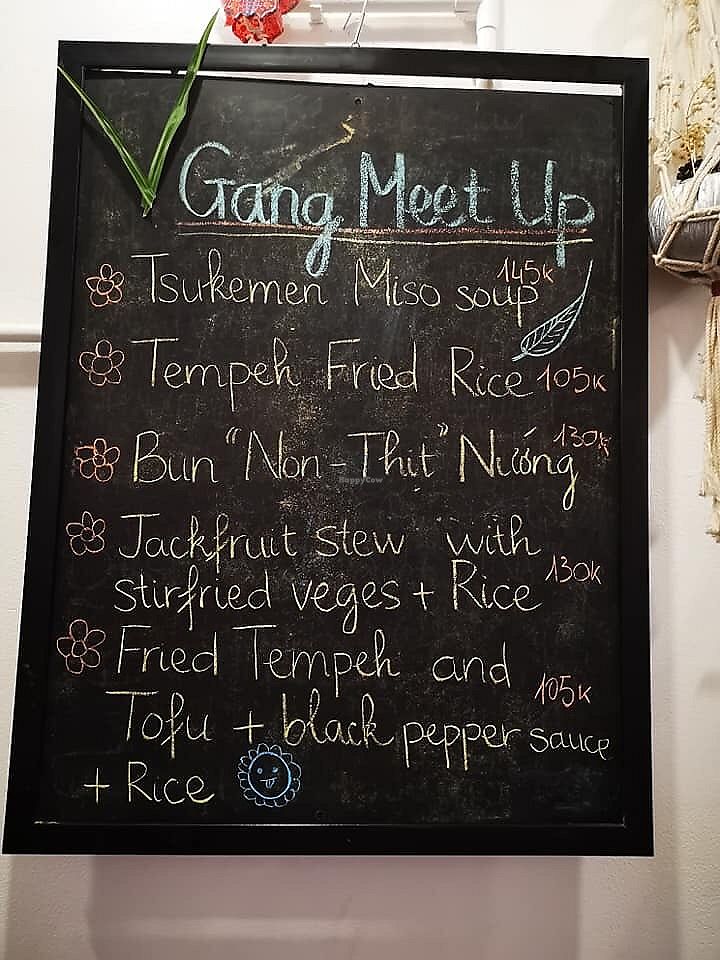 Gang Meet Up
Tsukemen Miso soup 145k
Tempeh Fried Rice 105k
Bun "Non-Thịt" Nướng 130k
Jackfruit stew with
stirfried veges + Rice 130k
Fried Tempeh and
Tofu + black pepper sauce 105k
+ Rice
HappyCow